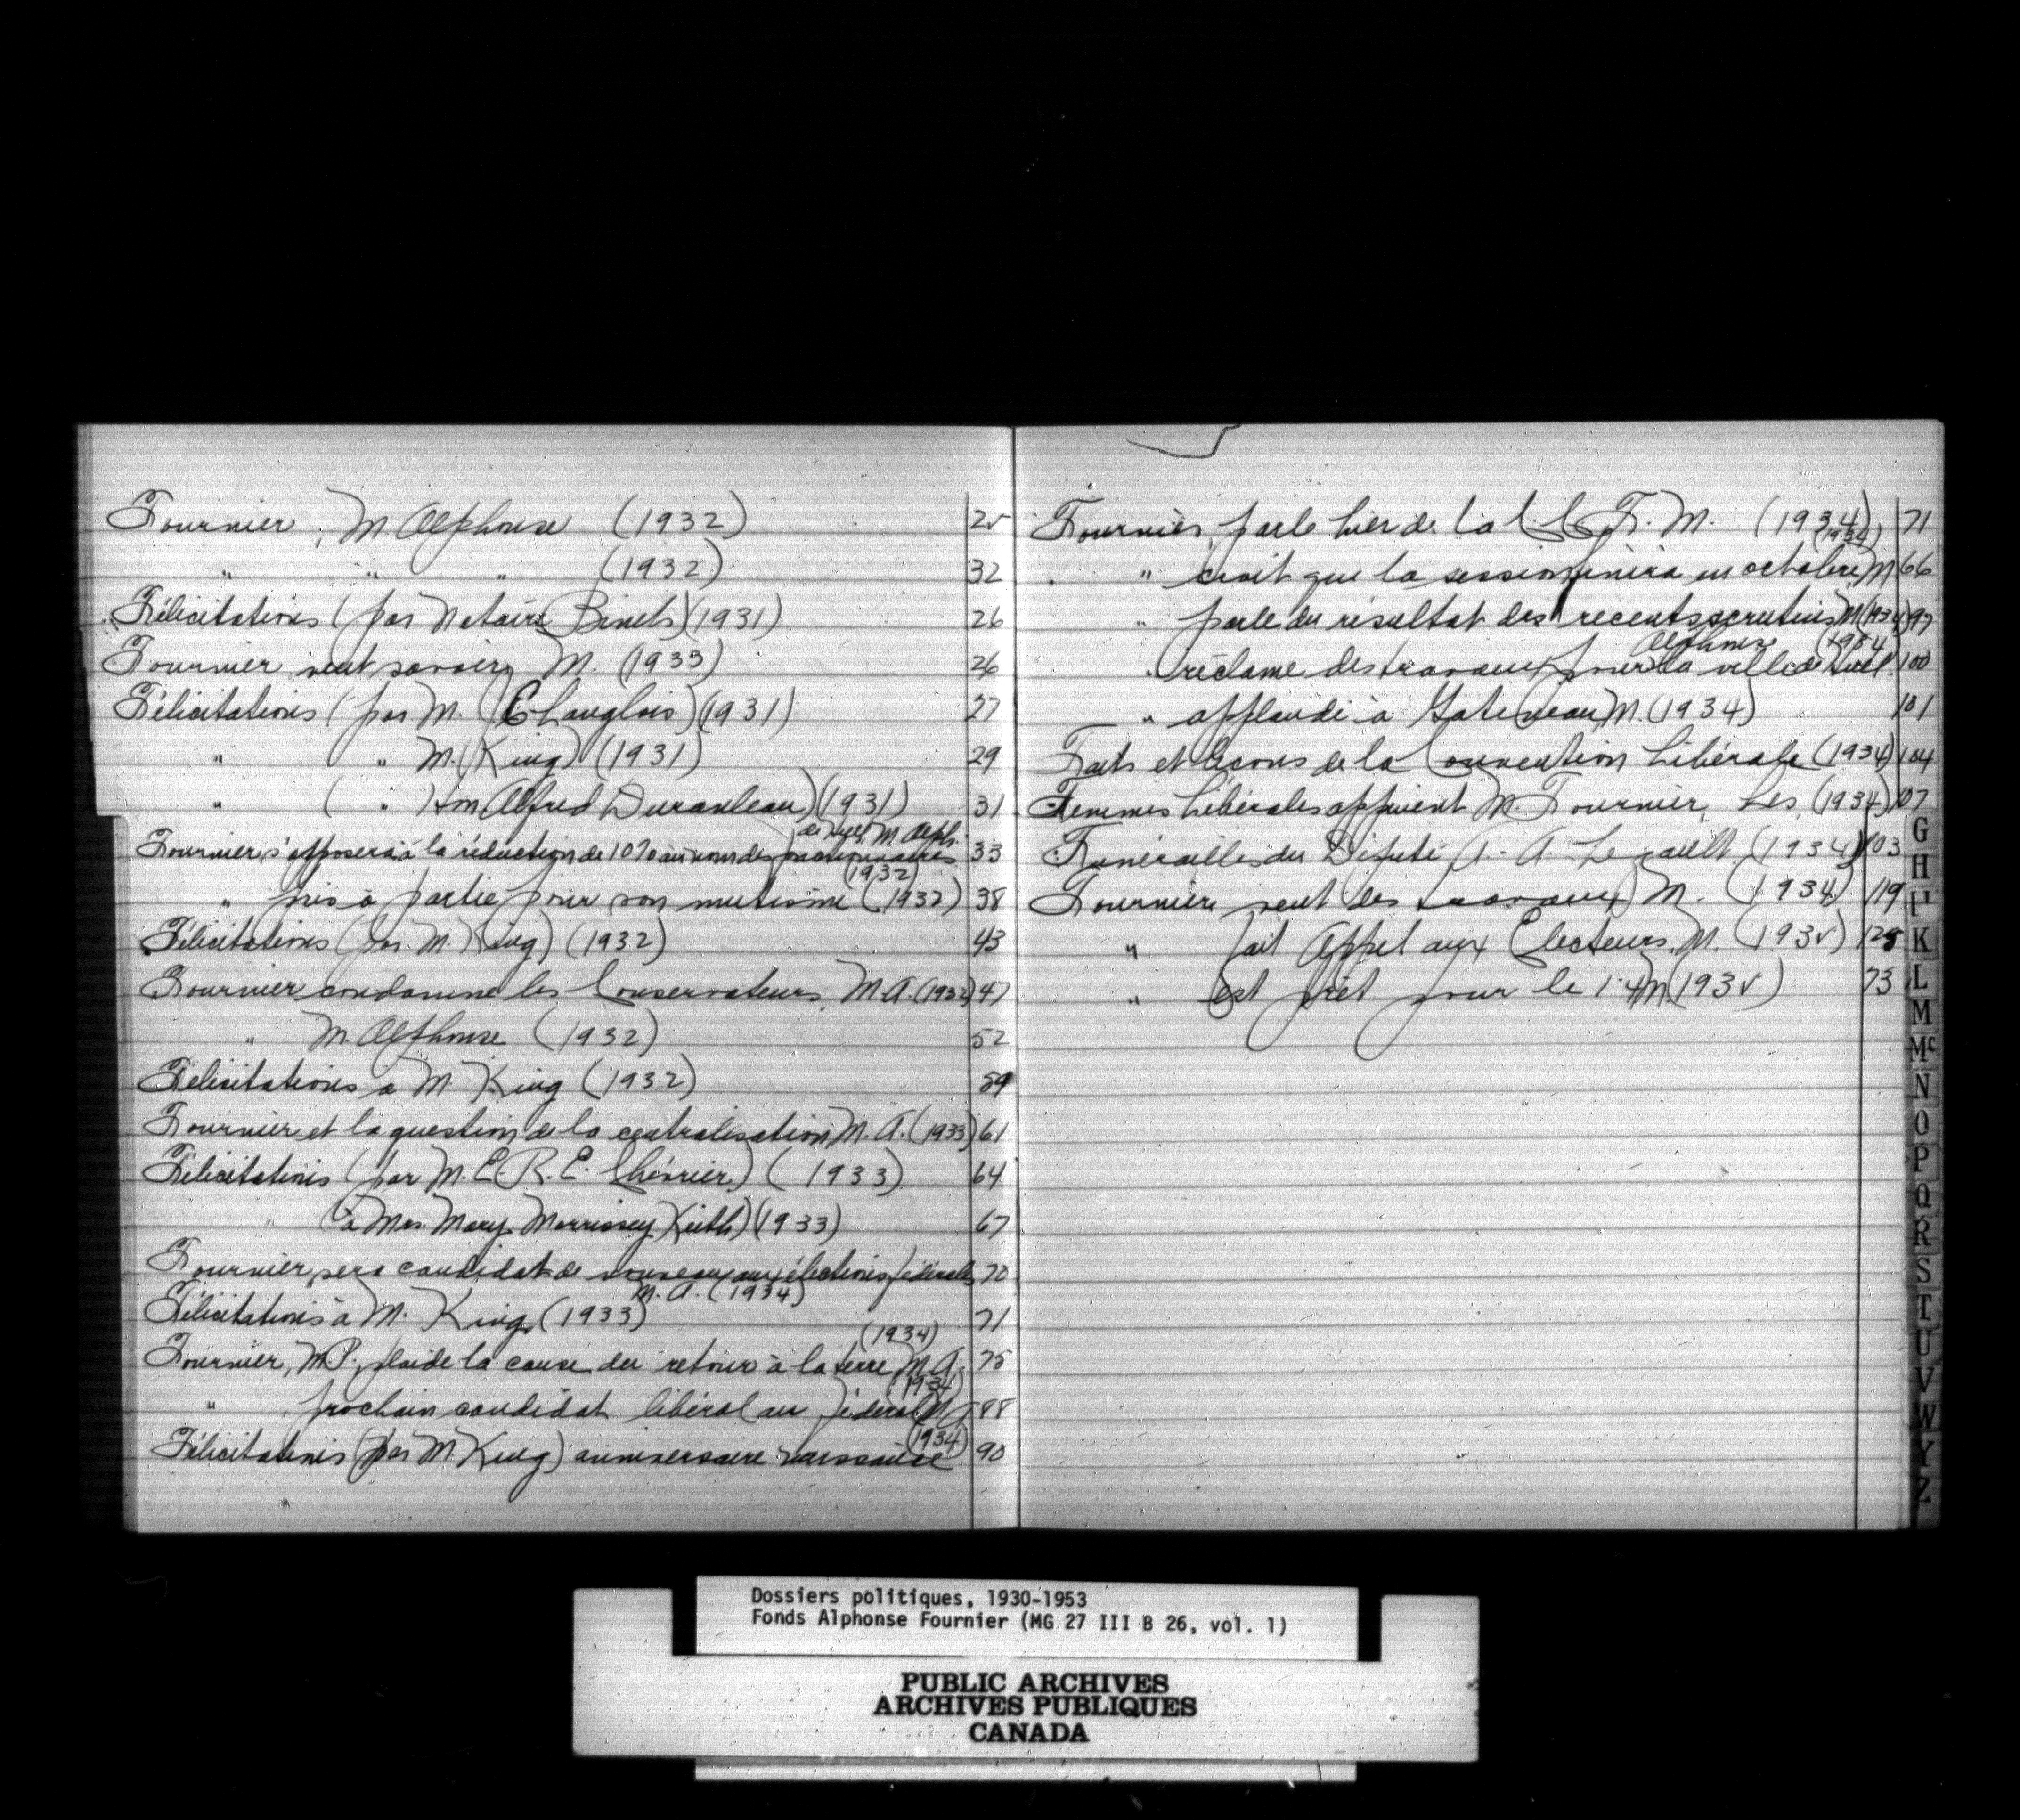 Fournier, M. Alphonse (1932) 25
" " " (1932) 32
Félicitations (par Notaire Binet) (1931) 26
Fournier veut savoir, M. (1933) 26
Félicitations (par M. Langlois) (1931) 27
" " M. King) (1931) 29
" ( " Hon Alfred Duranleau) (1931) 31
de Hull, M. Alph.
Fournier s'opposera à la réduction de 10% au nom des fonctionnaires 33
(1932)
" pris à partie pour son mutisme (1932) 38
Félicitations (par M. King) (1932) 43
Fournier condamne les Conservateurs, M.A. (1932) 47
" M. Alphonse (1932) 52
Félicitations à M. King (1932) 59
Fournier et la question de la centralisation M. A. (1933) 61
Félicitations (par M. E. R. E. Chévrier) (1933) 64
" (à Mrs. Mary Morrissey Keith) (1933) 67
Fournier, sera candidat de nouveau aux élections fédérales 70
M. A. (1934)
Félicitations à M. King, (1933) 71
(1934)
Fournier, M.P., plaide la cause du retour à la terre, M. A. 75
(1934)
" prochain candidat libéral au fédéral, M. 88
(1934)
Félicitations (par M. King) anniversaire naissance 90
Fournier, parle hier de la M. (1934) 71
(1934)
" croit que la session finira en octobre, M 66
" parle du résultat des recents scrutins M (1934) 97
Alphonse 1934
" réclame des travaux pour la ville de Hull 100
" applaudi à Gatineau, M. (1934) 101
Faits et leçons de la Convention Libérale (1934) 104
Femmes Libérales appuient M. Fournier, Les, (1934) 107
Funérailles du Député A. Legault (1934) 103
Fournier, veut des travaux, M. (1934) 119
" fait Appel aux Electeurs, M. (1935) 128
" est prêt pour le 14 M (1935) 73
G
H
I
K
L
M
Mc
N
O
P
Q
R
S
T
U
V
W
Y
Z
Dossiers politiques, 1930-1953
Fonds Alphonse Fournier (MG 27 III B 26, vol. 1)
PUBLIC ARCHIVES
ARCHIVES PUBLIQUES
CANADA